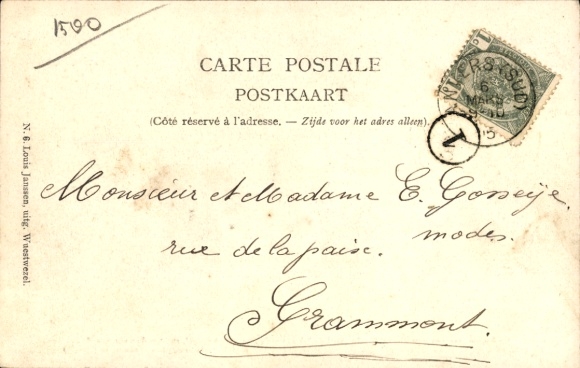 1500
CARTE POSTALE
POSTKAART
(Côté réservé à l'adresse. — Zijde voor het adres alleen).
ANVERS (SUD)
6
MARS
1
Monsieur et Madame E. Gosseije.
modes.
rue de la paise.
Grammont.
N. 6. Louis Janssen, uitg. Wuestwezel.